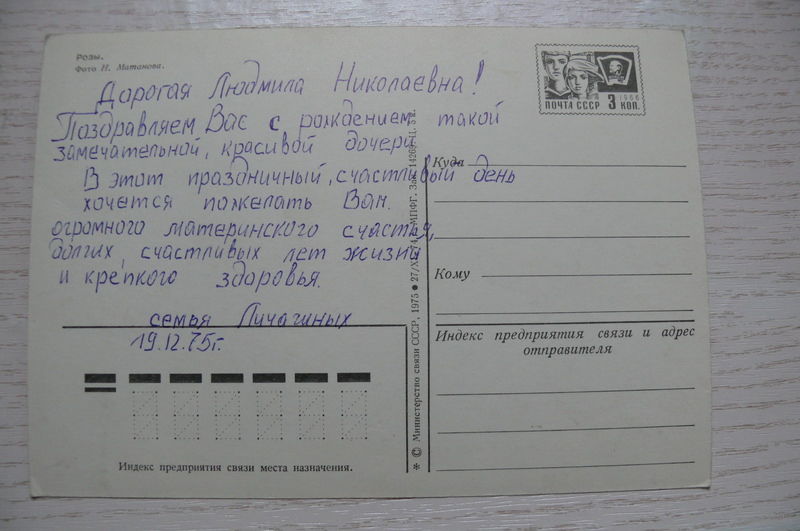 Розы.
Фото Н. Матанова.
Дорогая Людмила Николаевна!
Поздравляем Вас с рождением такой
замечательной, красивой дочери
В этот праздничный, счастливый день
хочется пожелать Вам
огромного материнского счастья,
долгих, счастливых лет жизни
и крепкого здоровья.
семья Личагиных
19.12.75г.
Индекс предприятия связи места назначения.
* © Министерство связи СССР, 1975 ● 27/X МПФГ. Зак.
ПОЧТА СССР 3 КОП.
1966
Куда
Кому
Индекс предприятия связи и адрес
отправителя